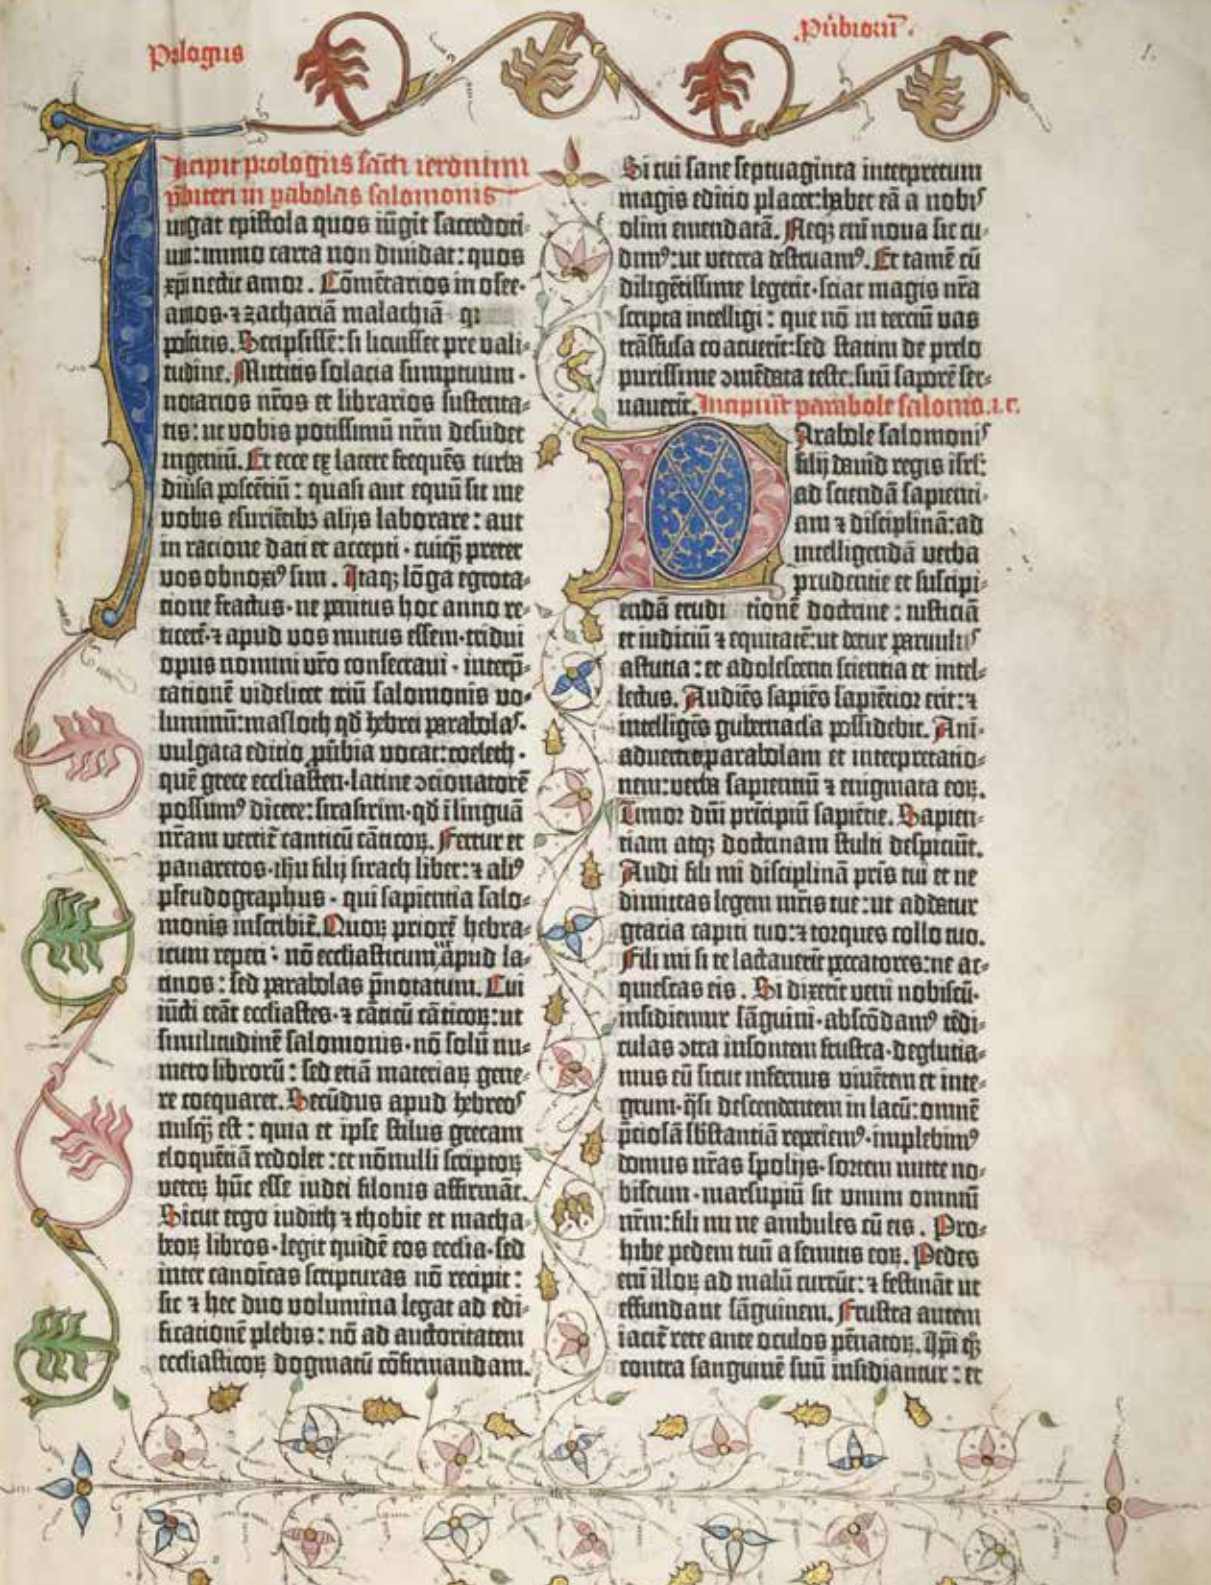 Prologus
Pūbiorū.
1.
Incipit prologus sācti ieronimi
pbiteri in pabolas salomonis
Iungat epistola quos iūgit sacerdoti-
um: immo carta non diuidat: quos
xpi nectit amor. Cōmētarios in osee-
amos-⁊ zachariā malachiā- q
poscitis. Scripsissē: si licuisset pre vali-
tudine. Mittitis solacia sumptuum-
notarios nr̄os et librarios sustenta-
tis: ut vobis potissimū nr̄m desudet
ingeniū. Et ecce ex latere frequēs turba
diūsa poscētiū: quasi aut equū sit me
vobis esuriētibȝ alijs laborare: aut
in racione dati et accepti- cuiqȝ preter
vos obnoxiꝰ sim. Itaqȝ lōga egrota-
tione fractus- ne penitus hoc anno re-
ticerē-⁊ apud vos mutus essem-tridui
opus nomini vr̄o consecraui- interp̄-
tationē videlicet triū salomonis vo-
luminū: masloth qd̄ hebrei parabolas-
vulgata editio p̄ūbia vocat: coeleth-
quē grece eccl̄iasten-latine ɔcionatorē
possumꝰ dicere: sirasirim-qd̄ i linguā
nr̄am vertit̄ canticū cāticoꝝ. Fertur et
panaretos-ih̄u filij sirach liber: ⁊ aliꝰ
pseudographus- qui sapientia salo-
monis inscribit̄. Quoꝝ priorē hebra-
icum reperi: nō eccl̄iasticum ut apud la-
tinos: sed parabolas p̄notatum. Cui
iūcti erāt eccl̄iastes-⁊ cāticū cāticoꝝ: ut
similitudinē salomonis-nō solū nu-
mero librorū: sed etiā materiaꝝ gene-
re coequaret. Secūdus apud hebreos
nusqȝ est: quia et ipse stilus grecam
eloquētiā redolet: et nōnulli scriptoꝝ
veterꝝ hūc esse iudei filonis affirmāt.
Sicut ergo iudith ⁊ thobie et macha-
beoꝝ libros-legit quidē eos eccl̄ia-sed
inter canoīcas scripturas nō recipit:
sic ⁊ hec duo volumina legat ad edi-
ficationē plebis: nō ad auctoritatem
eccl̄iasticoꝝ dogmatū cōfirmandam.
Si cui sane septuaginta interpretum
magis editio placet: habet eā a nobis
olim emendatā. Neqȝ eni̅ noua sic cu-
dimꝰ: ut vetera destruamꝰ. Et tamē cū
diligētissime legerit-sciat magis nr̄a
scripta intelligi: que nō in terciū vas
trāsfusa coacuerit: sed statim de prelo
purissime ɔmēdata teste: suū saporē ser-
uauerit. Incipiūt parabole salomo.i.c.
Parabole salomonis
filij dauid regis isrl̄:
ad sciendā sapienti-
am ⁊ disciplinā: ad
intelligendā verba
prudentie et suscipi-
endā erudi tionē doctrine: iusticiā
et iudiciū ⁊ equitatē: ut detur paruulis
astutia: et adolescenti scientia et intel-
lectus. Audiēs sapiēs sapiētior erit: ⁊
intelligēs gubernacla possidebit. Ani-
aduertet parabolam et interpretatio-
nem: verba sapientiū ⁊ enigmata eoꝝ.
Timor dn̄i prīcipiū sapiētie. Sapien-
tiam atqȝ doctrinam stulti despiciūt.
Audi fili mi disciplinā pr̄is tui et ne
dimittas legem mr̄is tue: ut addatur
gracia capiti tuo: ⁊ torques collo tuo.
Fili mi si te lactauerīt peccatores: ne ac-
quiescas eis. Si dixerīt veni nobiscū-
insidiemur sāguini- abscōdamꝰ tēdi-
culas ɔtra insontem frustra-deglutia-
mus eū sicut infernus viuētem et inte-
grum-q̄si descendentem in lacū: omnē
p̄ciosā sb̄stantiā reperiemꝰ-implebimꝰ
domus nr̄as spolijs-sortem mitte no-
biscum-marsupiū sit unum omniū
nr̄m: fili mi ne ambules cū eis. Pro-
hibe pedem tuū a semitis eoꝝ. Pedes
eni̅ illoꝝ ad malū currūt: ⁊ festināt ut
effundant sāguinem. Frustra autem
iacit̄ rete ante oculos pēnatoꝝ. Ip̄i qȝ
contra sanguinē suū insidiantur: et